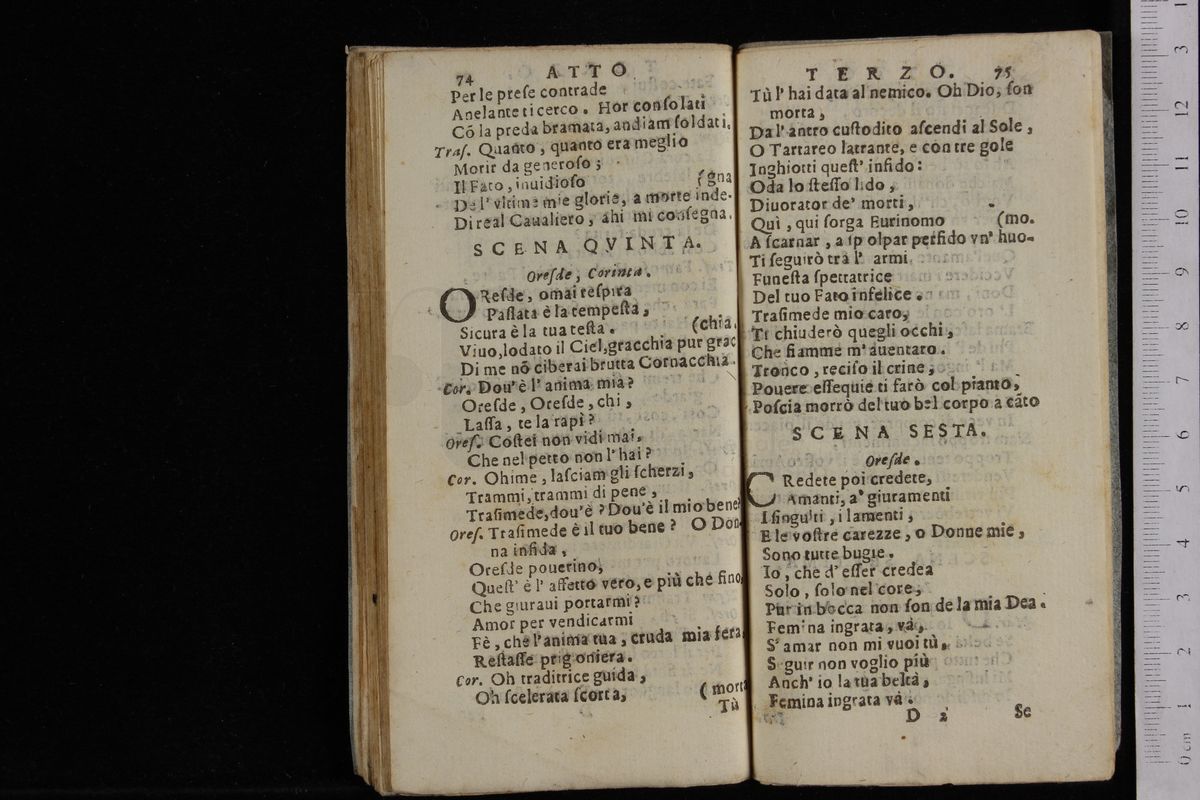 74 ATTO
Per le preſe contrade
Anelante ti cerco. Hor conſolati
Cō la preda bramata, andiam ſoldati.
Traſ. Quanto, quanto era meglio
Morir da generoſo;
Il Fato, inuidioſo (gna
De l' vltime mie glorie, a morte inde-
Di real Caualiero, ahi mi conſegna.
SCENA QVINTA.
Oreſde, Corinta.
OReſde, omai reſpira
Paſſata è la tempeſta,
Sicura è la tua teſta. (chia.
Viuo, lodato il Ciel, gracchia pur grac
Di me nō ciberai brutta Cornacchia.
Cor. Dou' è l' anima mia?
Oreſde, Oreſde, chi,
Laſſa, te la rapì?
Oreſ. Coſtei non vidi mai.
Che nel petto non l' hai?
Cor. Ohime, laſciam gli ſcherzi,
Trammi, trammi di pene,
Traſimede, dou'è? Dou'è il mio bene?
Oreſ. Traſimede è il tuo bene? O Don-
na infida,
Oreſde pouerino,
Queſt' è l' affetto vero, e più che fino
Che giuraui portarmi?
Amor per vendicarmi
Fè, che l'anima tua, cruda mia fera
Reſtaſſe prigoniera.
Cor. Oh traditrice guida,
Oh ſcelerata ſcorta, (morta
Tù
TERZO. 75
Tù l' hai data al nemico. Oh Dio, ſon
morta,
Da l' antro cuſtodito aſcendi al Sole,
O Tartareo latrante, e con tre gole
Inghiotti queſt' infido:
Oda lo ſteſſo lido,
Diuorator de' morti,
Quì, qui ſorga Eurinomo (mo.
A ſcarnar, a ſpolpar perfido vn' huo-
Ti ſeguirò trà l' armi
Funeſta ſpettatrice
Del tuo Fato infelice.
Traſimede mio caro,
Ti chiuderò quegli occhi,
Che fiamme m' auentaro.
Tronco, reciſo il crine,
Pouere eſſequie ti farò col pianto,
Poſcia morrò del tuo bel corpo a cāto
SCENA SESTA.
Oreſde.
CRedete poi credete,
Amanti, a' giuramenti
I ſingulti, i lamenti,
E le voſtre carezze, o Donne mie,
Sono tutte bugie.
Io, che d' eſſer credea
Solo, ſolo nel core,
Pur in bocca non ſon de la mia Dea.
Femina ingrata, và,
S' amar non mi vuoi tù,
Seguir non voglio più
Anch' io la tua beltà,
Femina ingrata và.
D 2 Se
0 cm 1 2 3 4 5 6 7 8 9 10 11 12 13